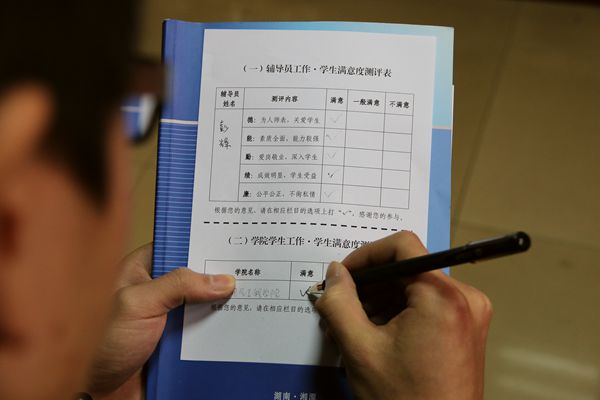 （一）辅导员工作·学生满意度测评表
辅导员姓名 测评内容 满意 一般满意 不满意
德：为人师表，关爱学生 ✓
能：素质全面，能力较强 ✓
勤：爱岗敬业，深入学生 ✓
绩：成效明显，学生受益 ✓
廉：公平公正，不徇私情 ✓
根据您的意见，请在相应栏目的选项上打“✓”，感谢您的参与。
（二）学院学生工作·学生满意度测
学院名称 满意
✓
根据您的意见，请在相应栏目的选项
湖南·湘潭